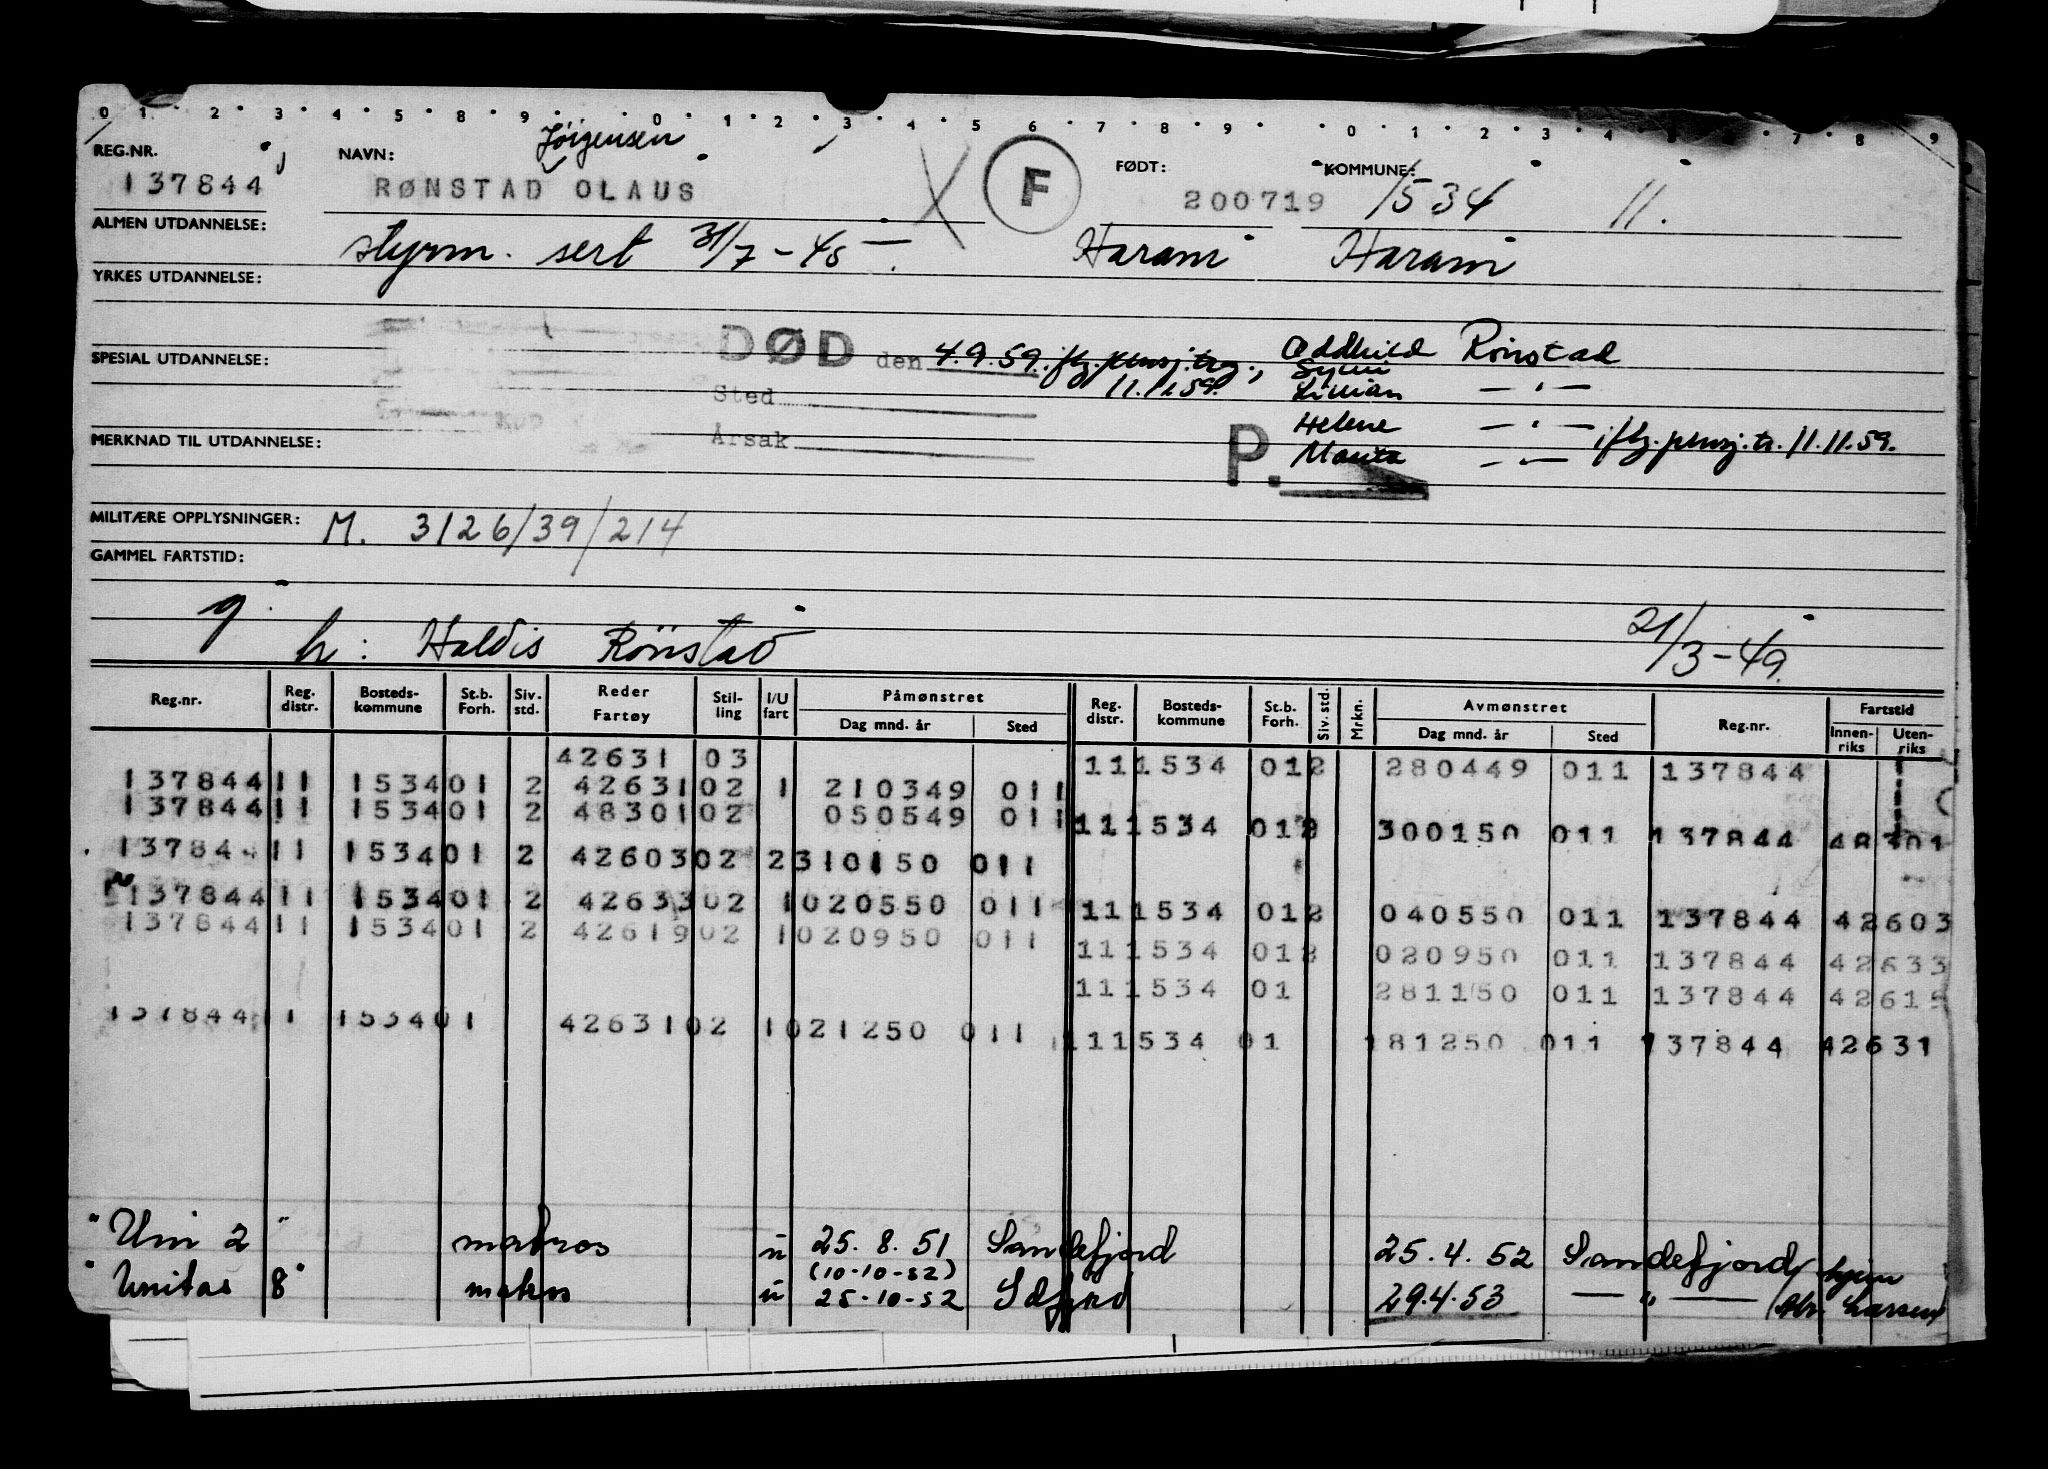 0 1 2 3 4 5 8 9 0 1 2 3 4 5 6 7 8 9 0 1 2 3 4 7 8 9
Jørgensen
REG.NR. NAVN: FØDT: KOMMUNE:
137844 RØNSTAD OLAUS F 200719 1534 11.
ALMEN UTDANNELSE: styrm. sert 31/7-45 Haram Haram
YRKES UTDANNELSE:
DØD den 4.9.59. iflg. pensj.trg., Oddhild Rønstad
SPESIAL UTDANNELSE: 11.11.59.
Sted Lillian — " —
Helene — " —
Årsak P. Marita — " — iflg. pensj.tr. 11.11.59.
MERKNAD TIL UTDANNELSE:
MILITÆRE OPPLYSNINGER: M. 3126/39/214
GAMMEL FARTSTID:
g. h: Haldis Rønstad 21/3-49
Reg.nr. Reg. distr. Bosteds-kommune St.b. Forh. Siv. std. Reder Fartøy Stil-ling I/U fart Påmønstret Dag mnd. år Sted Reg. distr. Bosteds-kommune St.b. Forh. Siv. std. Mrkn. Avmønstret Dag mnd. år Sted Reg.nr. Fartstid Innen-riks Uten-riks
42631 03
111534 012 280449 011 137844
137844 11 153401 2 4263102 1 210349 011
137844 11 153401 2 4830102 050549 011
111534 012 300150 011 137844 48301
137844 11 153401 2 4260302 2310150 011
137844 11 153401 2 4263302 1020550 011
111534 012 040550 011 137844 42603
137844 11 153401 2 4261902 1020950 011
111534 012 020950 011 137844 42633
111534 01 281150 011 137844 4261
137844 11 153401 4263102 1021250 011
111534 01 181250 011 137844 42631
"Uni 2" matros u 25.8.51 Sandefjord 25.4.52 Sandefjord
(10-10-52)
"Unitas 8" matros u 25-10-52 Sdfjord 29.4.53 — " — Larsen